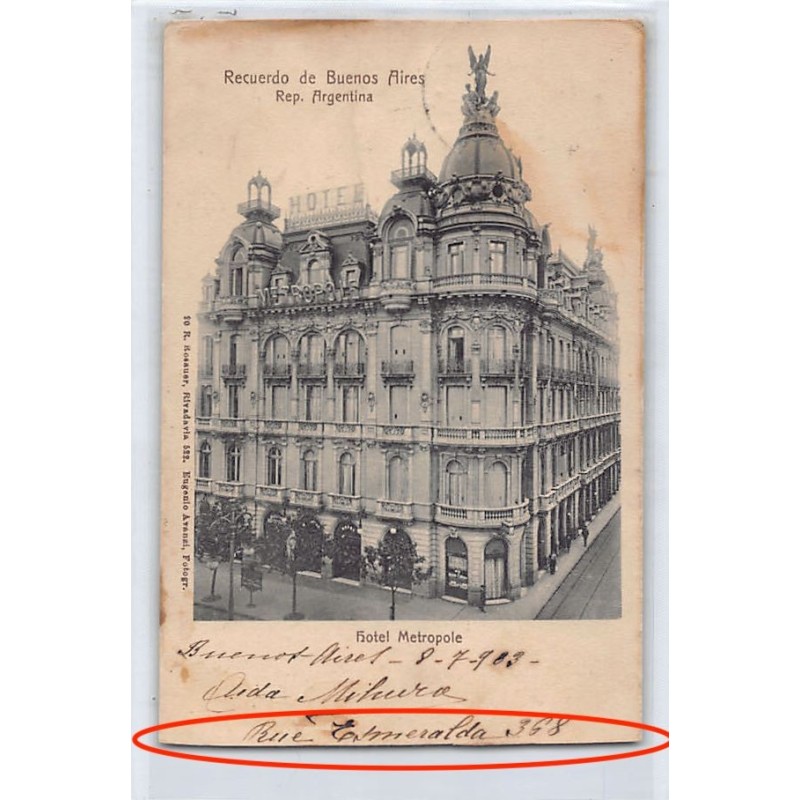 Recuerdo de Buenos Aires
Rep. Argentina
HOTEL
METROPOLE
20 R. Rosauer, Rivadavia 522. Eugenio Avanzi, Fotogr.
Hotel Metropole
Buenos Aires - 8-7-903-
Aida
Rue Esmeralda 368